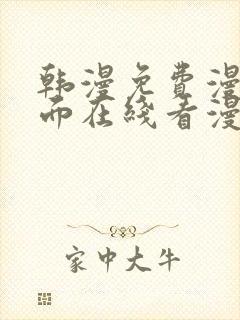 韩漫免费漫
而在线看漫
家中大牛